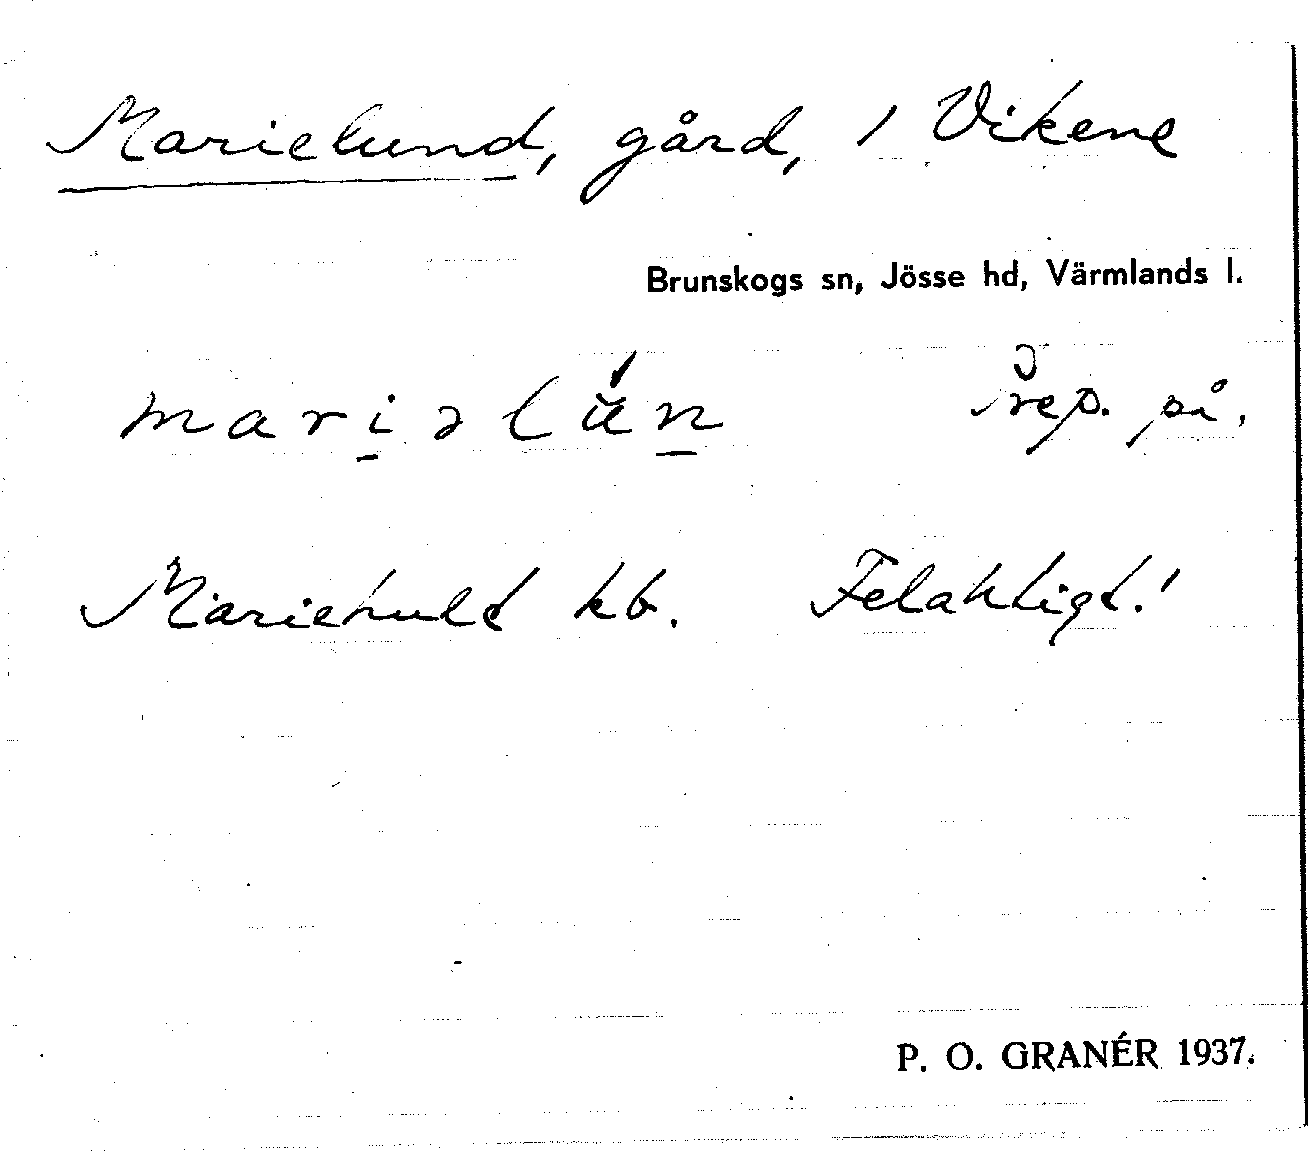 Marielund, gård, 1 Vikene
Brunskogs sn, Jösse hd, Värmlands l.
mariəlún prep. på.
Mariehuld kb. Felaktigt!
P. O. GRANÉR 1937.